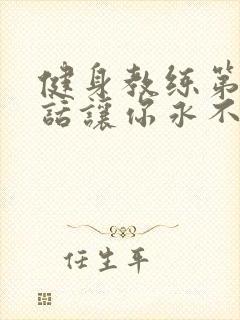 健身教练第
話讓你永不
任生平